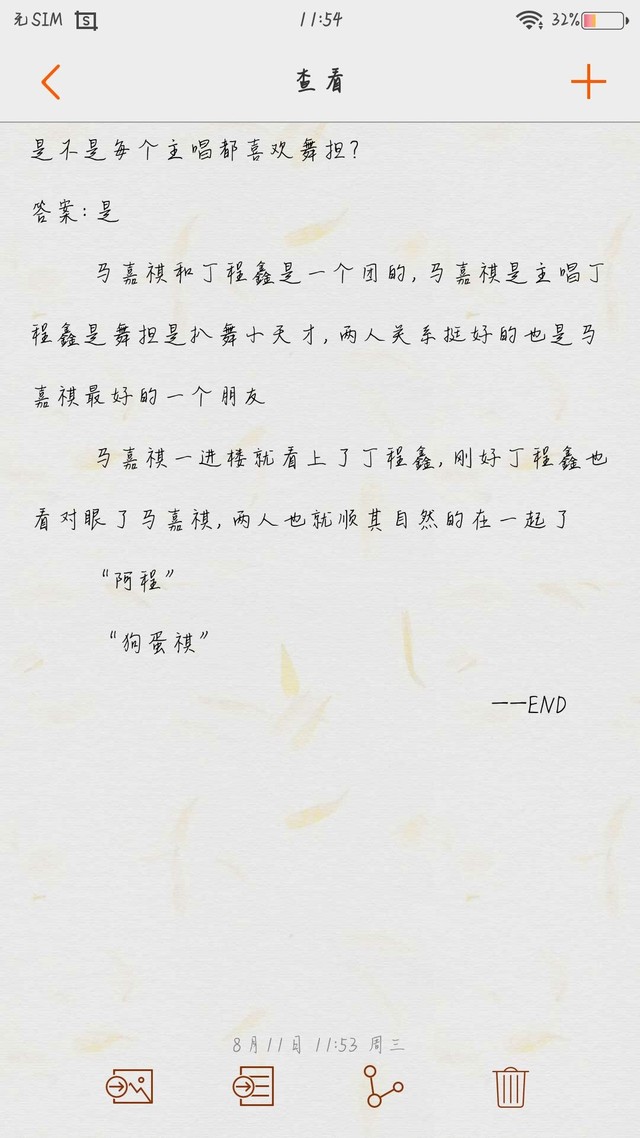 无SIM 11:54 32%
查看
是不是每个主唱都喜欢舞担?
答案:是
马嘉祺和丁程鑫是一个团的,马嘉祺是主唱丁
程鑫是舞担是扒舞小天才,两人关系挺好的也是马
嘉祺最好的一个朋友
马嘉祺一进楼就看上了丁程鑫,刚好丁程鑫也
看对眼了马嘉祺,两人也就顺其自然的在一起了
“阿程”
“狗蛋祺”
——END
8月11日 11:53 周三